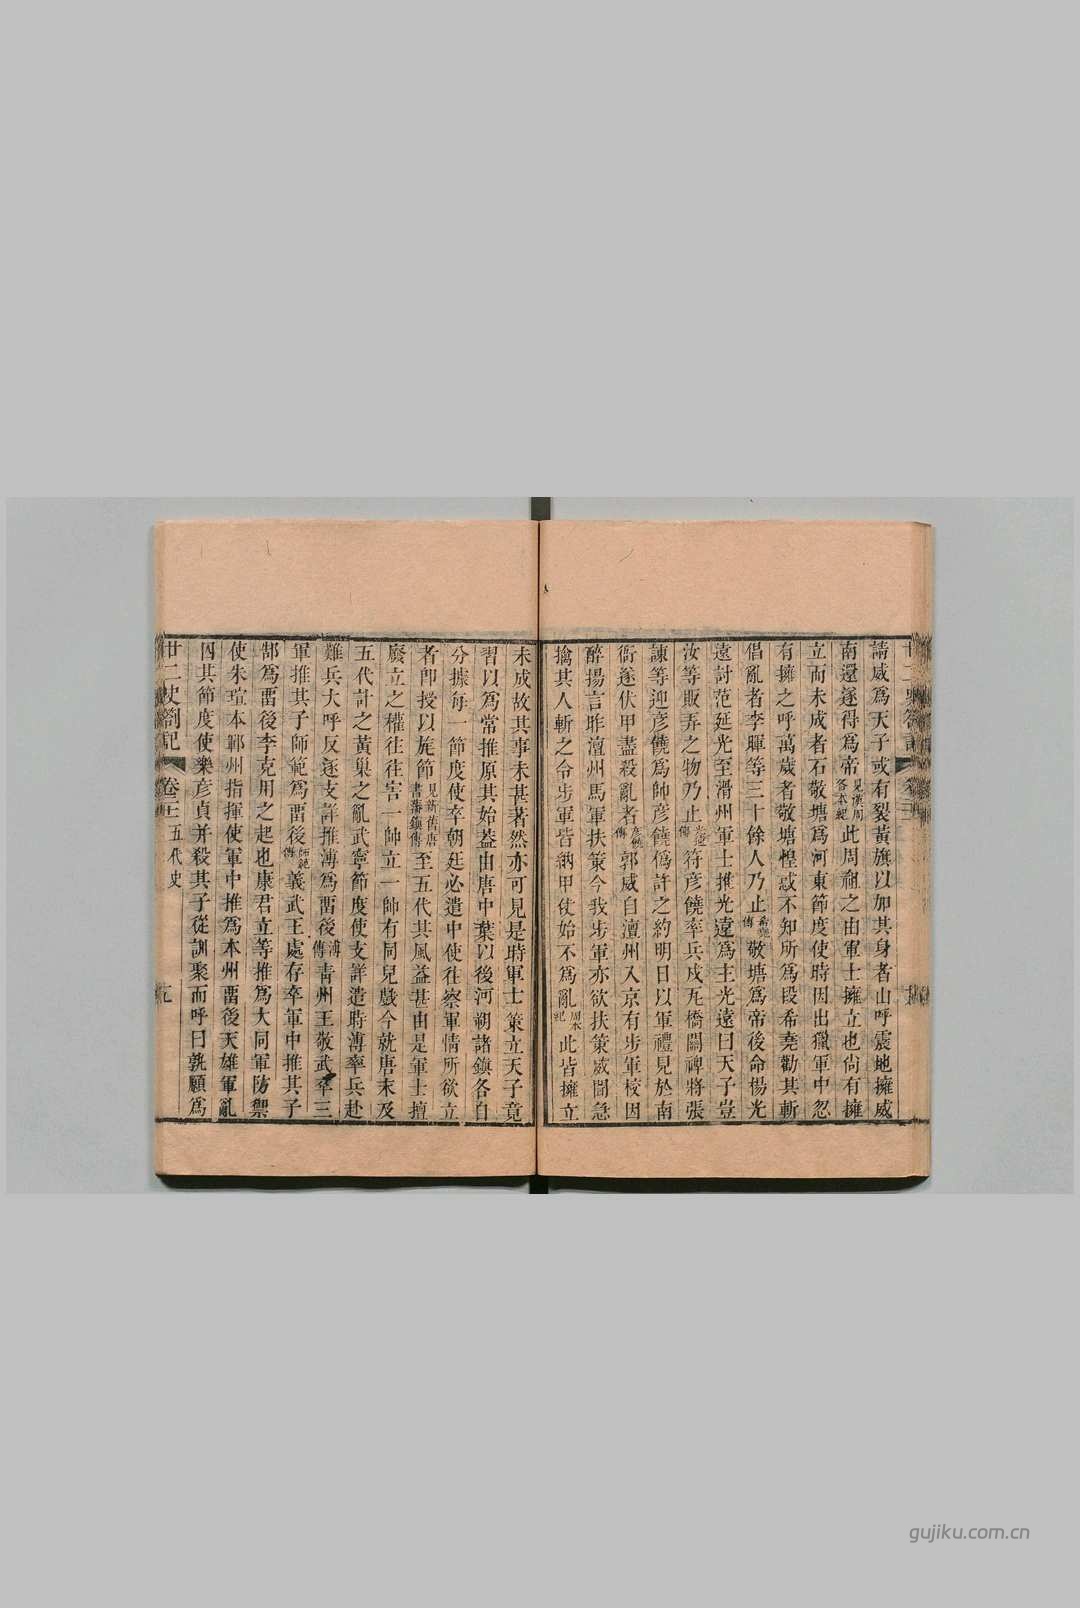 請威爲天子或有裂黃旗以加其身者山呼震地擁威
南還遂得爲帝見漢周各本紀此周祖之由軍士擁立也尙有擁
立而未成者石敬塘爲河東節度使時因出獵軍中忽
有擁之呼萬歲者敬塘惶惑不知所爲段希堯勸其斬
倡亂者李暉等三十餘人乃止希堯傳敬塘爲帝後命楊光
遠討范延光至滑州軍士推光遠爲主光遠曰天子豈
汝等販弄之物乃止光遠傳符彥饒率兵戍瓦橋關裨將張
諫等迎彥饒爲帥彥饒僞許之約明日以軍禮見於南
衙遂伏甲盡殺亂者彥饒傳郭威自澶州入京有步軍校因
醉揚言昨澶州馬軍扶策今我步軍亦欲扶策威聞急
擒其人斬之令步軍皆納甲仗始不爲亂周本紀此皆擁立
未成故其事未甚著然亦可見是時軍士策立天子竟
習以爲常推原其始葢由唐中葉以後河朔諸鎭各自
分據每一節度使卒朝廷必遣中使往察軍情所欲立
者卽授以旄節見新舊唐書藩鎭傳至五代其風益甚由是軍士擅
廢立之權往往害一帥立一帥有同兒戲今就唐末及
五代計之黃巢之亂武寧節度使支詳遣時溥率兵赴
難兵大呼反逐支詳推溥爲畱後溥傳靑州王敬武卒三
軍推其子師範爲畱後師範傳義武王處存卒軍中推其子
郜爲畱後李克用之起也康君立等推爲大同軍防禦
使朱瑄本鄆州指揮使軍中推爲本州畱後天雄軍亂
囚其節度使樂彥貞并殺其子從訓聚而呼曰孰願爲
廿二史劄記 卷二十一 五代史
gujiku.com.cn